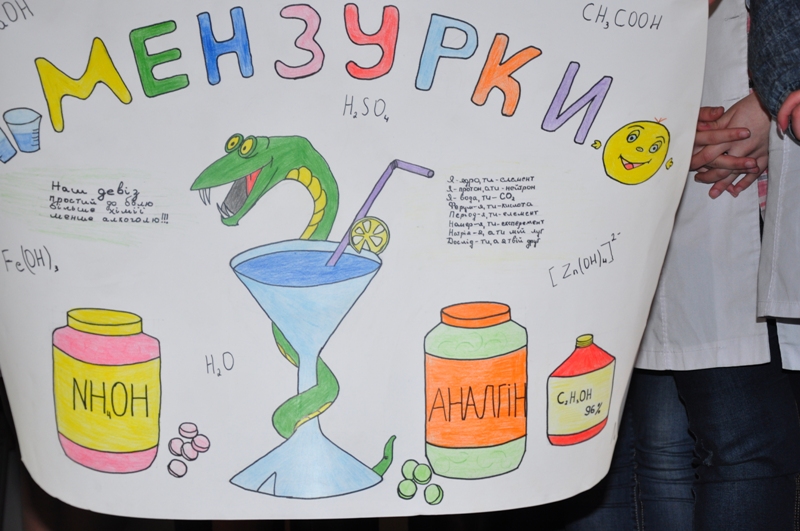 OH
CH₃COOH
МЕНЗУРКИ
H₂SO₄
Наш девіз
простий до болю
більше хімії
менше алкоголю!!!
Я-ядро, ти-елемент
Я-протон, а ти-нейтрон
Я-вода, ти-CO₂
Я, ти-кислота
Період-я, ти-елемент
я, ти-експеримент
Натрій-я, а ти мій луг
Дослід-ти, а я твій друг
Fe(OH)₃
[Zn(OH)₄]²⁻
H₂O
NH₄OH
АНАЛГІН
C₂H₅OH
96%